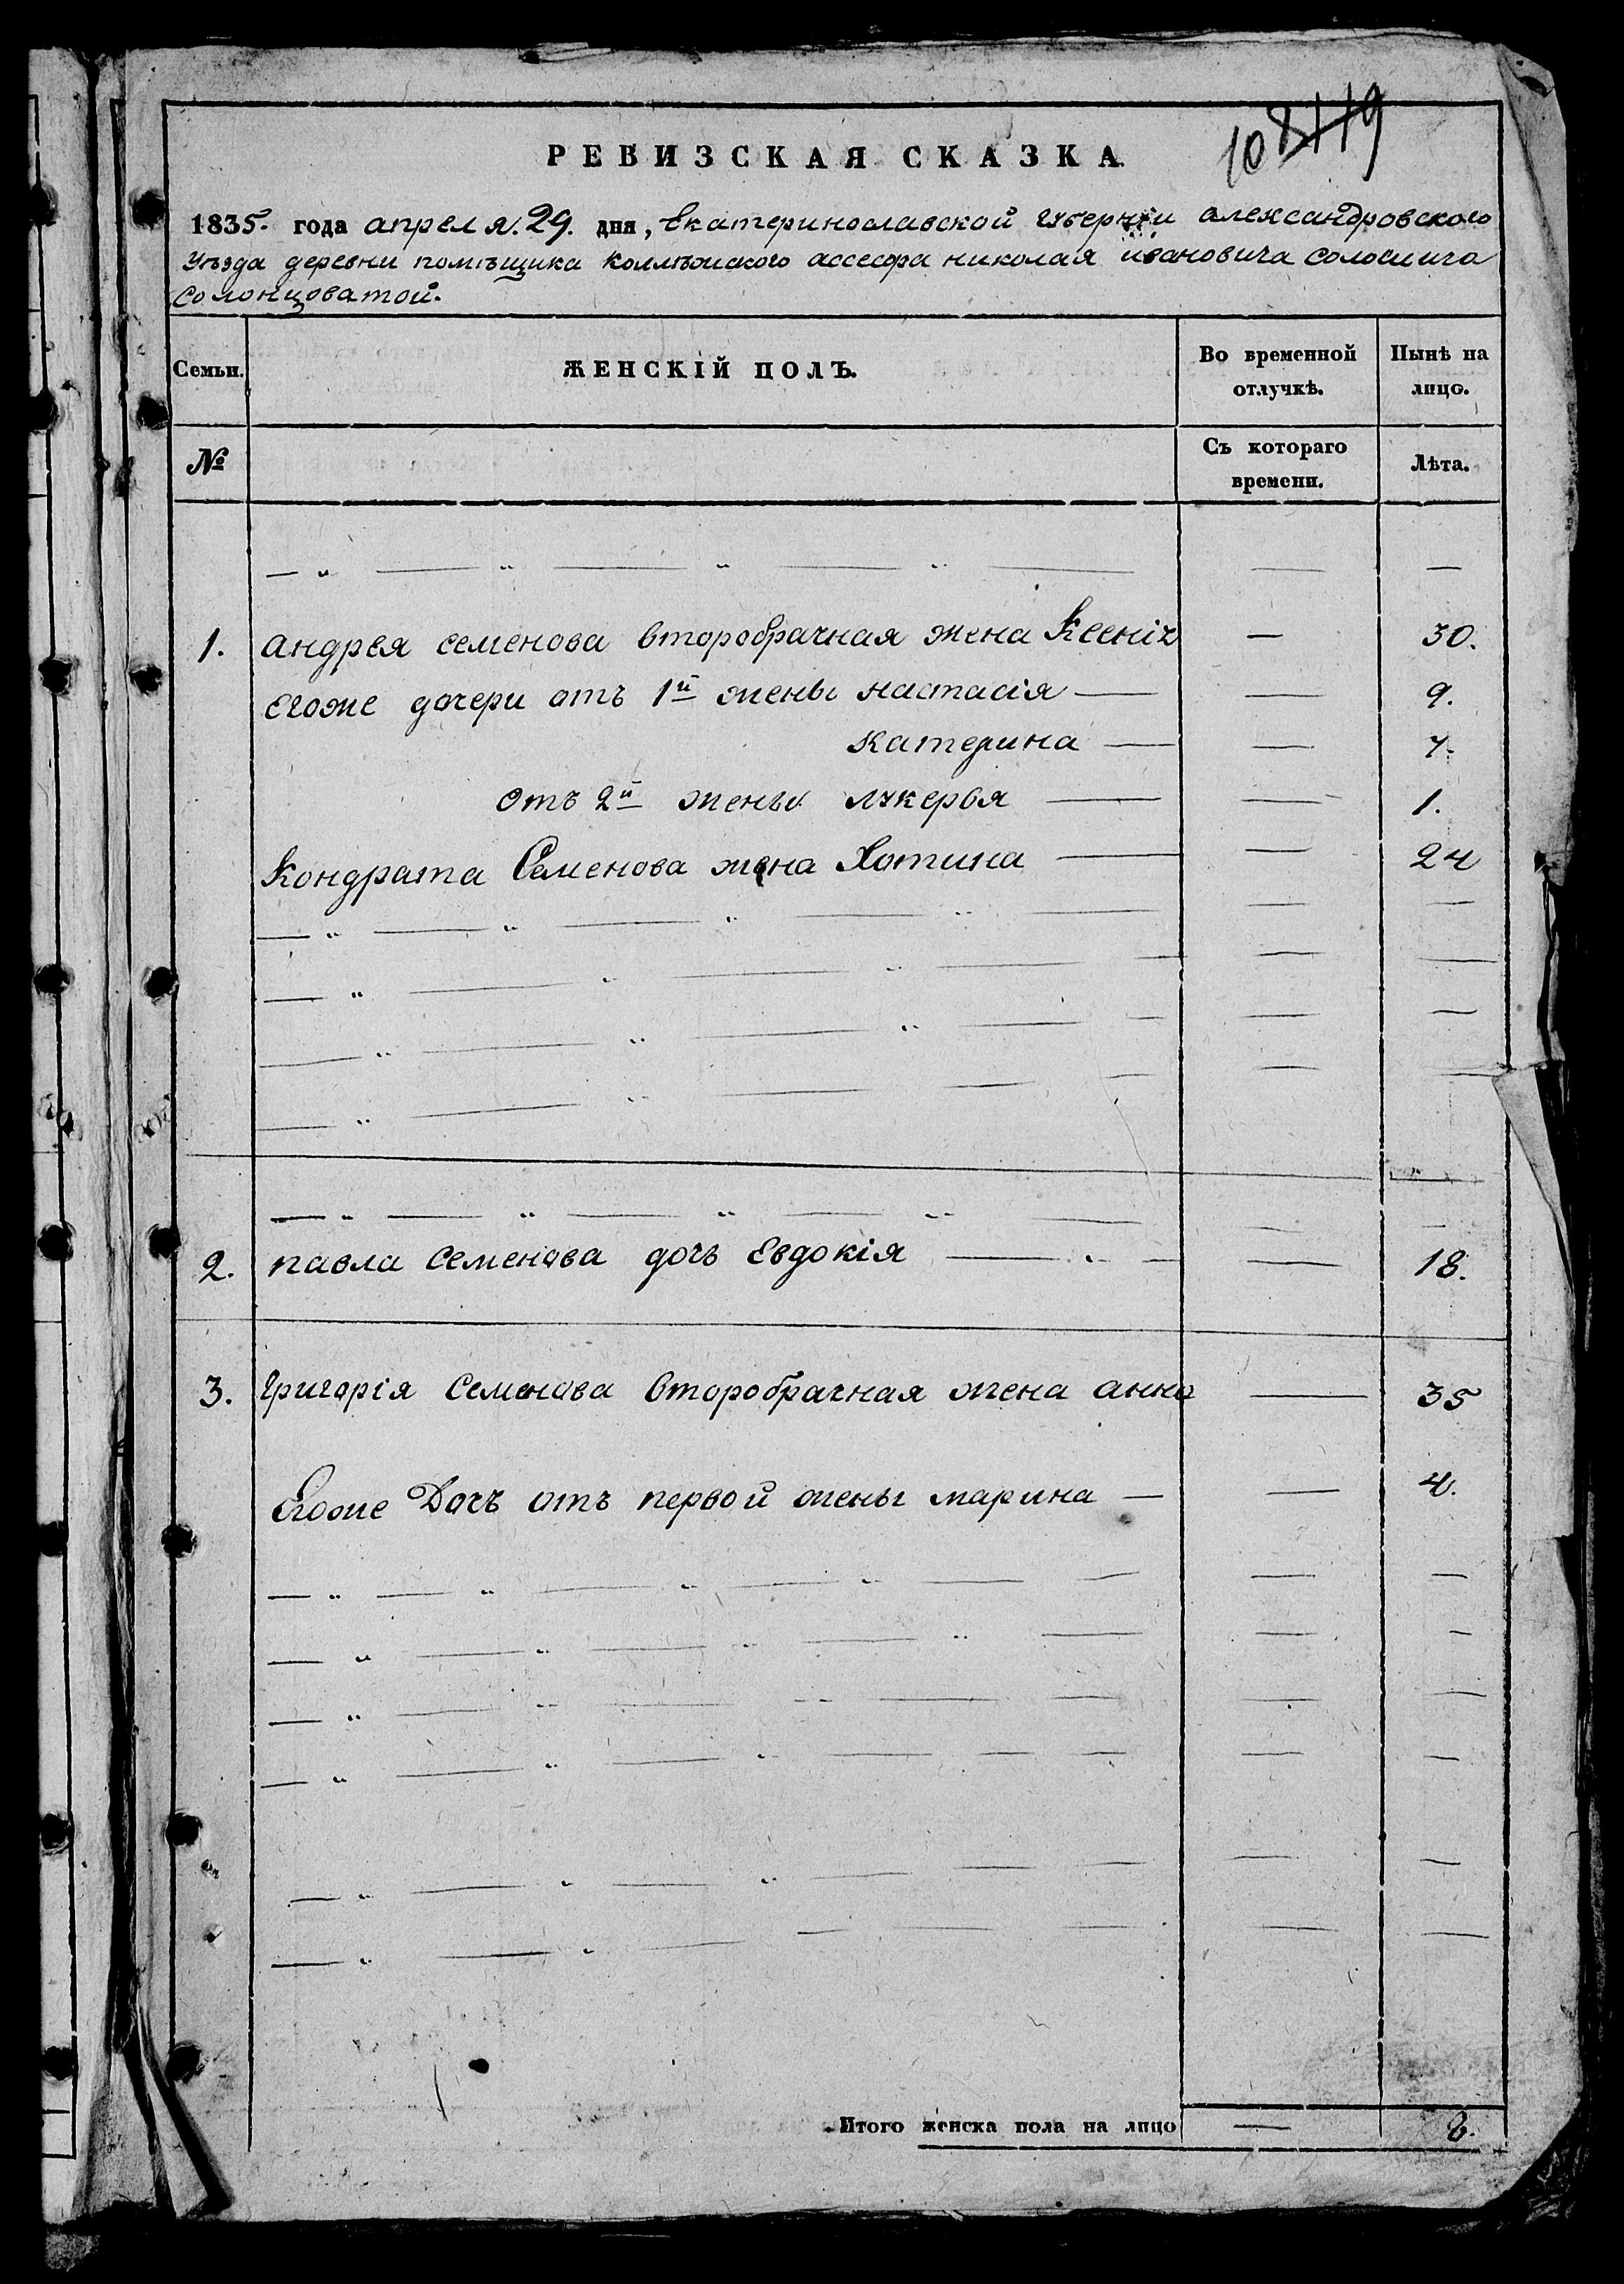 108119
РЕВИЗСКАЯ СКАЗКА
1835. года апреля. 29. дня, Екатеринославской губернии александровского
уезда деревни помѣщика коллѣжского ассесора николая ивановича
Солонцоватой.
Семьи. ЖЕНСКІЙ ПОЛЪ. Во временной отлучкѣ. Нынѣ на лицо.
№ Съ котораго времени. Лѣта.
1. андрея семенова второбрачная жена Ксенія — 30.
егоже дочери отъ 1й жены настасія — — 9.
катерина — — 7.
отъ 2й жены лукерья — — 1.
Кондрата Семенова жена Хотина — — 24
2. павла семенова дочь Евдокія — — 18.
3. григорія семенова второбрачная жена анна — 35
Егоже Дочь отъ первой жены марина — — 4.
Итого женска пола на лицо — 8.